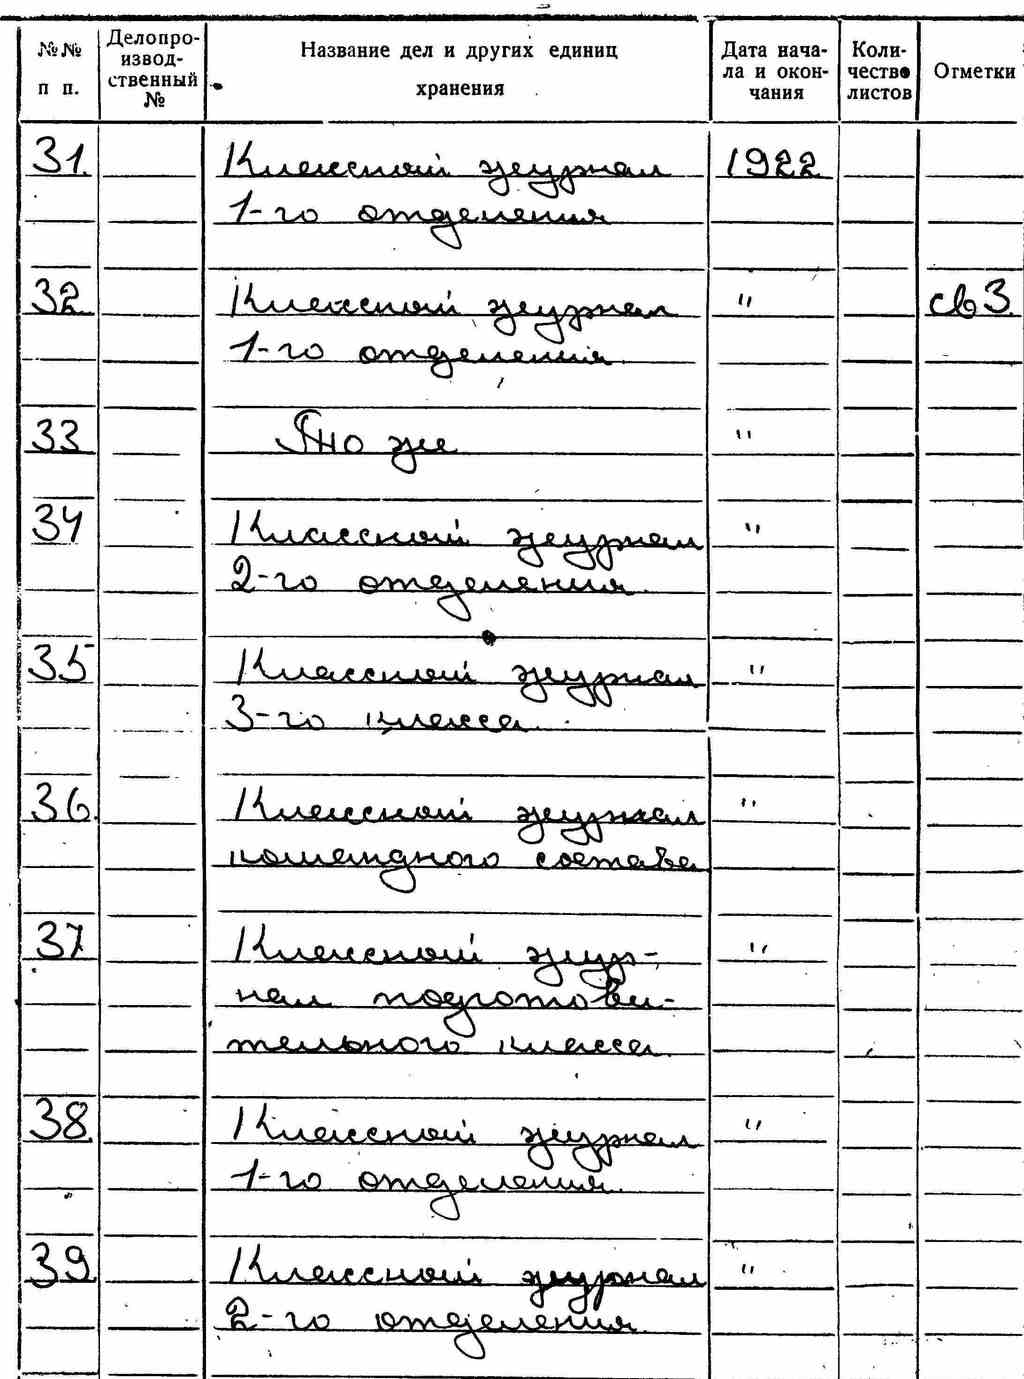 №№ п п.
Делопро-
извод-
ственный
№
Название дел и других единиц
хранения
Дата нача-
ла и окон-
чания
Коли-
чество
листов
Отметки
31. Классный журнал 1922
1-го отделения
32. Классный журнал " св 3.
1-го отделения.
33 То же "
34 Классный журнал "
2-го отделения.
35 Классный журнал "
3-го класса.
36. Классный журнал "
командного состава
37 Классный жур- "
нал подготови-
тельного класса.
38. Классный журнал "
1-го отделения.
39. Классный журнал "
2-го отделения.